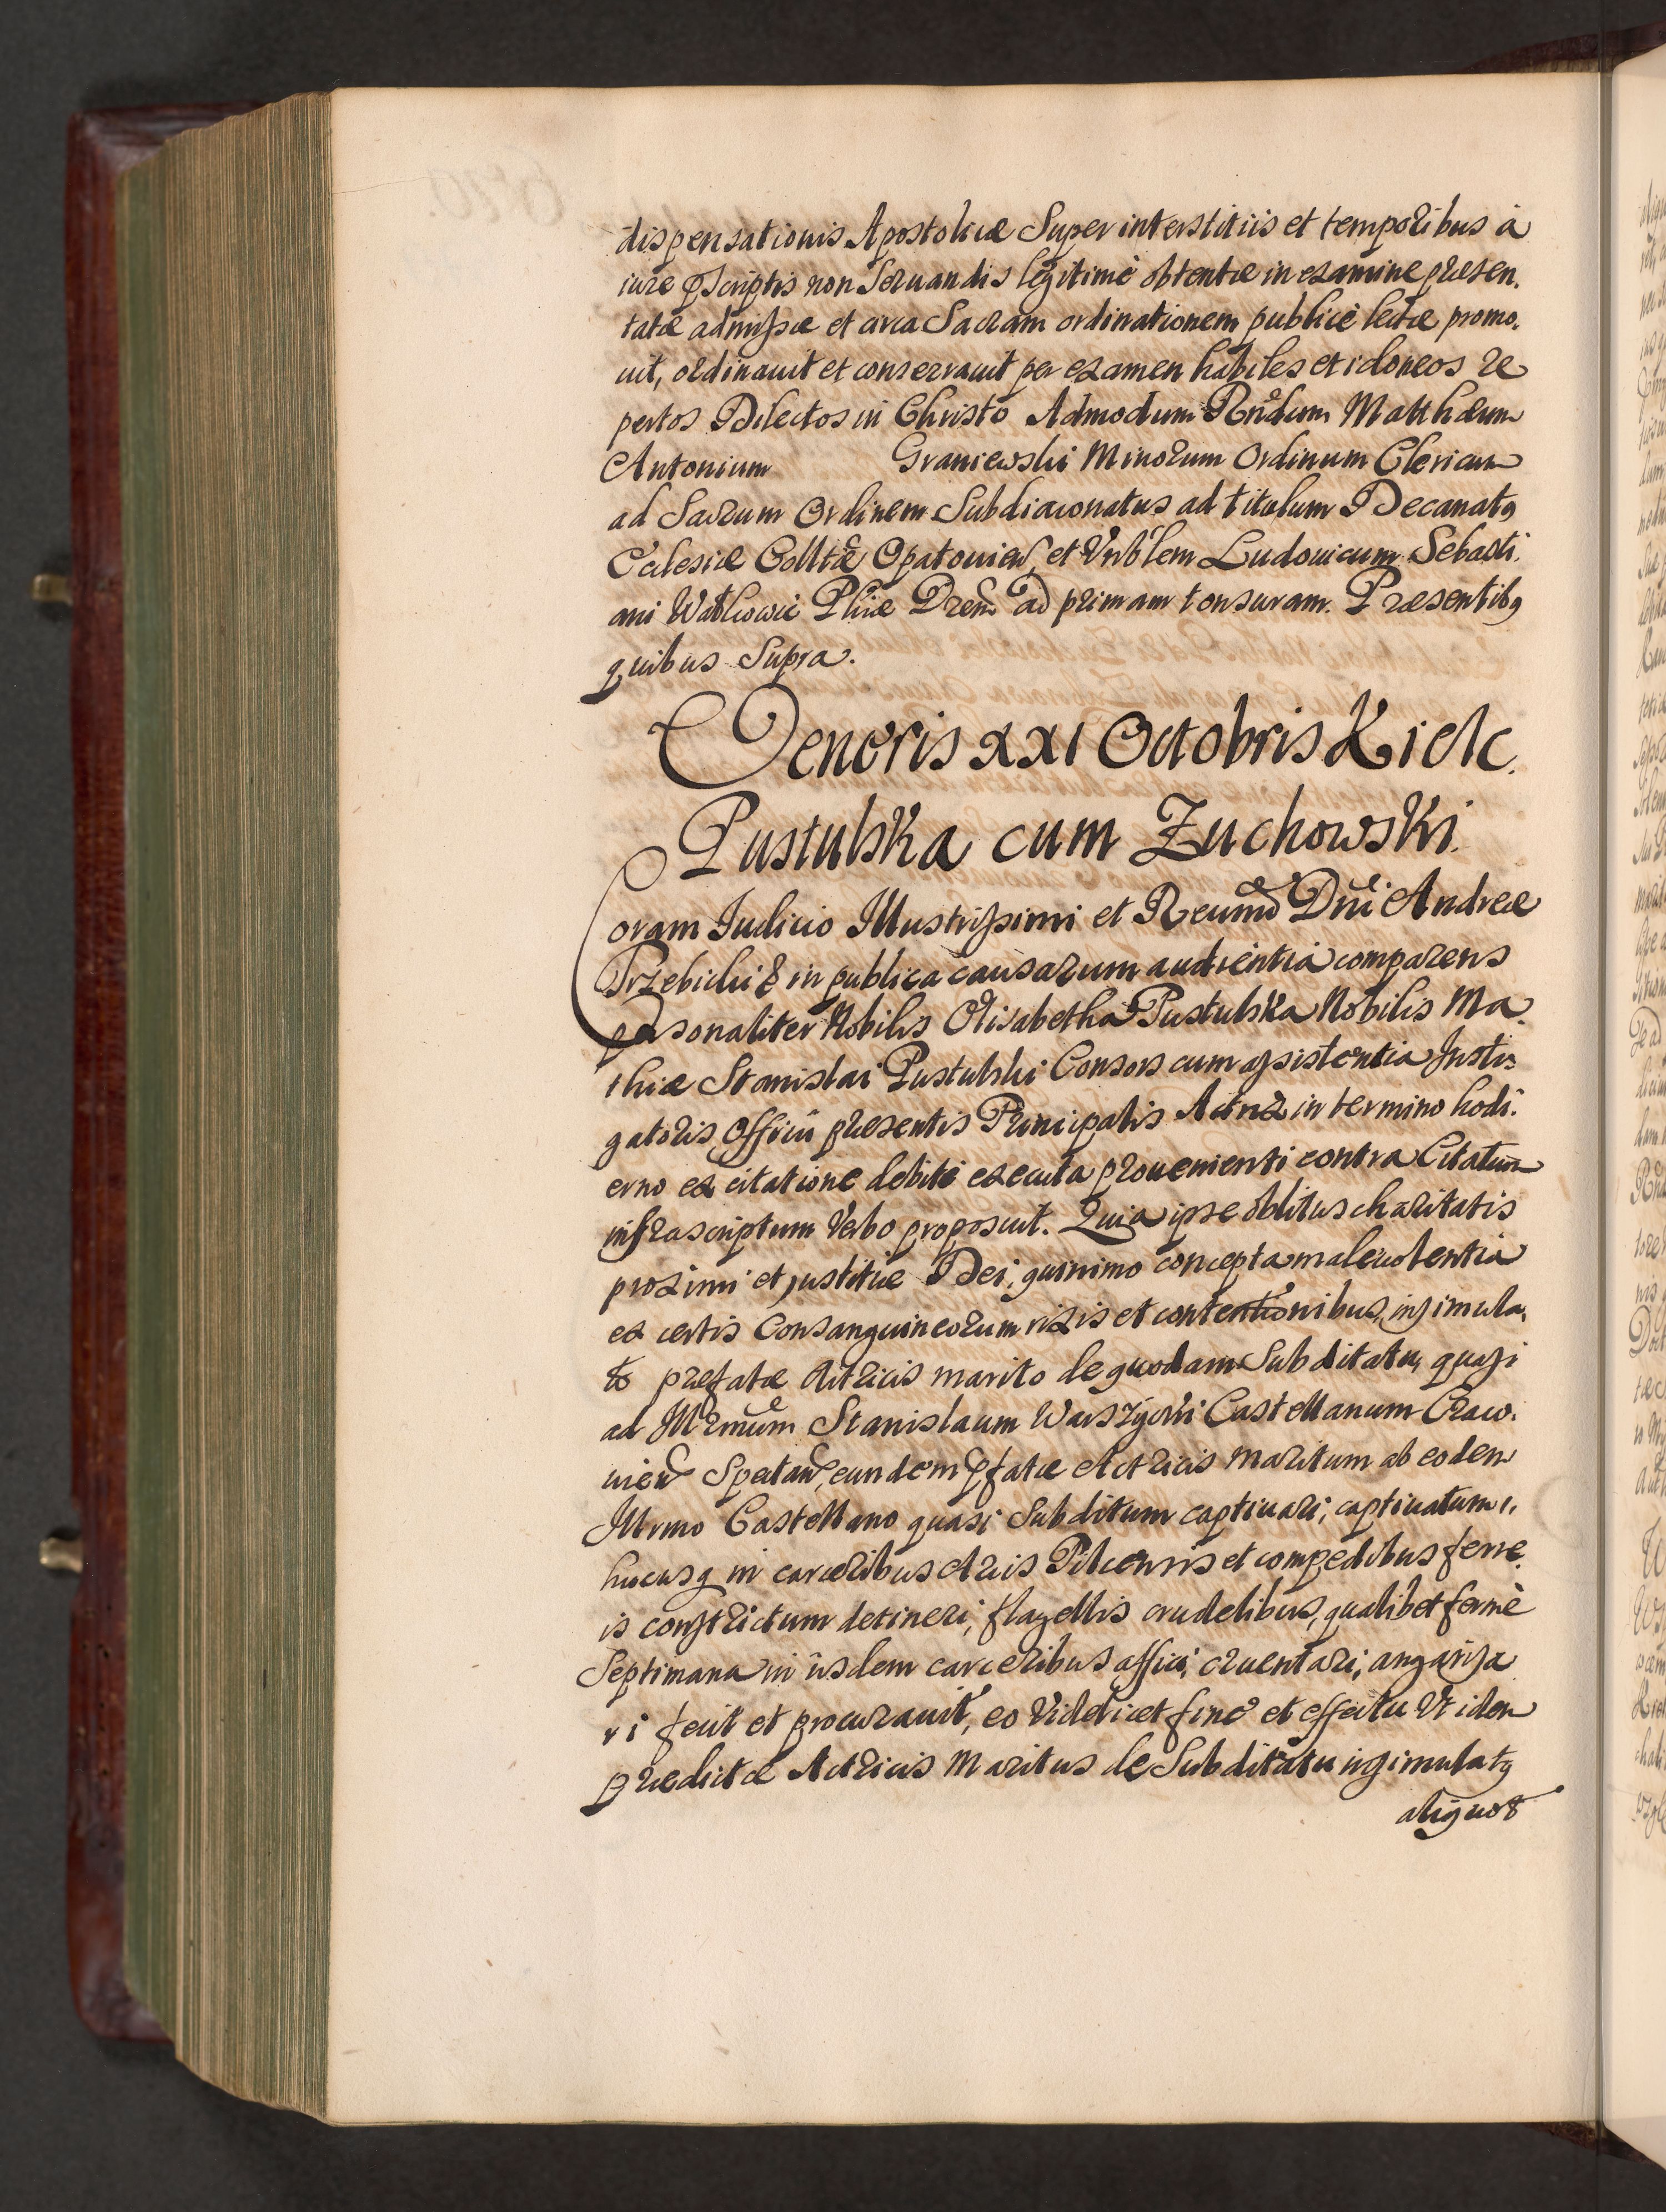 dispensationis Apostolicæ Super interstitiis et temporibus à
iure pscriptis non Seruandis legitimè obtentæ in examine præsen.
tatæ admissæ et circa Sacram ordinationem publicè lectæ promo.
uit, ordinauit et consecrauit per examen habiles et idoneos re
pertos Dilectos in Christo Admodum Rndum Matthæum
Antonium Graniewski Minorum Ordinum Clericum
ad Sacrum Ordinem Subdiaconatus ad titulum Decanatq
Ecclesiæ Colltæ Opatouien, et Vnblem Ludouicum Sebasti.
ani Watkowic Pliæ Drem ad primam tonsuram. Præsentibq
quibus Supra.
Veneris XXI Octobris Kielc.
Pustulska cum Zuchowski.
Coram Iudicio Illustrissimi et Reumi Dni Andreæ
Trzebicki & in publica causarum audientia comparens
personaliter Nobilis Elisabetha Pustulska Nobilis Ma.
thiæ Stanislai Pustulski Consors cum assistentia Insti=
gatoris Officii præsentis Principalis Actrix in termino hodi.
erno ex citatione debitè executa prouenienti contra Citatum
infrascriptum Verbo proposuit. Quia ipse oblitus charitatis
proximi et justitiæ Dei, quinimo concepta maleuolentia
ex certis Consanguineorum rixis et contentionibus, insimula,
to præfatæ Actricis marito de quodam Subditatu, quasi
ad Illrmum Stanislaum Warszycki Castellanum Craco.
uien Spectan, eundem pfatæ Actricis maritum ab eodem
Illrmo Castellano quasi Subditum captiuari, captiuatum,
hucusq in carceribus Arcis Pilcensis et compedibus ferre.
is constrictum detineri, flagellis crudelibus, qualibet fermè
Septimana in iisdem carceribus affici, cruentari, angariza
ri fecit et procurauit, eo Videlicet fine et effectu Vt idem
prædictæ Actricis Maritus de Subditatu insimulatq
aliquos